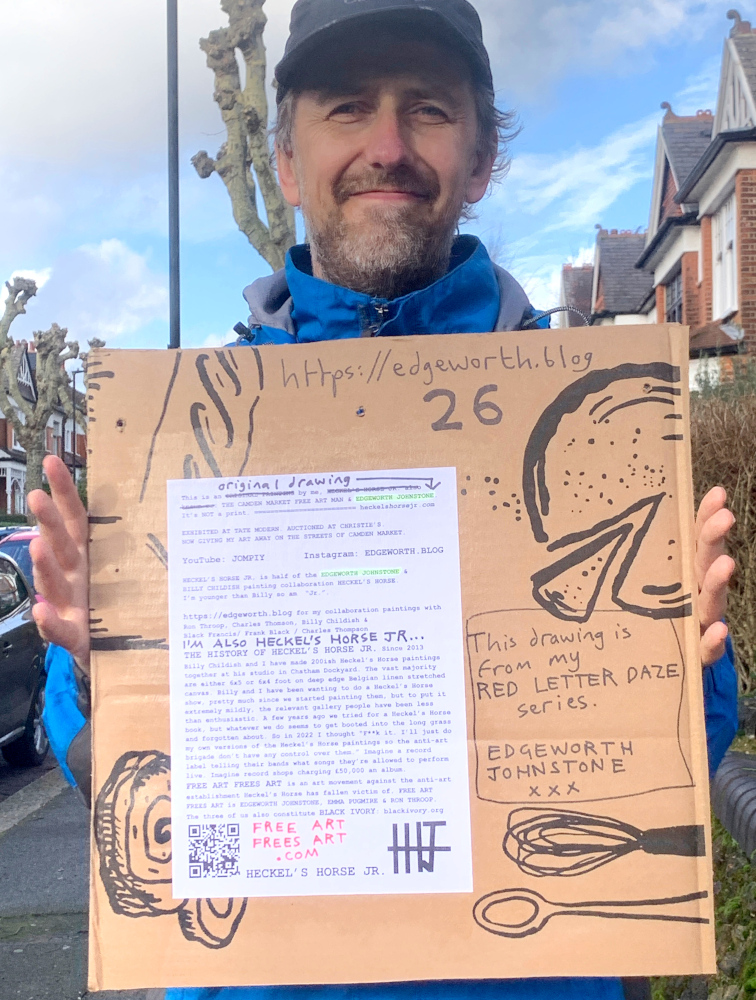 https://edgeworth.blog
26
original drawing
This is an ORIGINAL PAINTING by me, HECKEL'S HORSE JR. also
THE CAMDEN MARKET FREE ART MAN & EDGEWORTH JOHNSTONE.
It's NOT a print. heckelshorsejr.com
EXHIBITED AT TATE MODERN. AUCTIONED AT CHRISTIE'S
NOW GIVING MY ART AWAY ON THE STREETS OF CAMDEN MARKET.
YouTube: JOMPIY Instagram: EDGEWORTH.BLOG
HECKEL'S HORSE JR. is half of the EDGEWORTH JOHNSTONE &
BILLY CHILDISH painting collaboration HECKEL'S HORSE.
I'm younger than Billy so am "Jr.".
https://edgeworth.blog for my collaboration paintings with
Ron Throop, Charles Thomson, Billy Childish &
Black Francis/ Frank Black / Charles Thompson
I'M ALSO HECKEL'S HORSE JR...
THE HISTORY OF HECKEL'S HORSE JR. Since 2013
Billy Childish and I have made 200ish Heckel's Horse paintings
together at his studio in Chatham Dockyard. The vast majority
are either 6x5 or 6x4 foot on deep edge Belgian linen stretched
canvas. Billy and I have been wanting to do a Heckel's Horse
show, pretty much since we started painting them, but to put it
extremely mildly, the relevant gallery people have been less
than enthusiastic. A few years ago we tried for a Heckel's Horse
book, but whatever we do seems to get booted into the long grass
and forgotten about. So in 2022 I thought "F**k it. I'll just do
my own versions of the Heckel's Horse paintings so the anti-art
brigade don't have any control over them." Imagine a record
label telling their bands what songs they're allowed to perform
live. Imagine record shops charging £50,000 an album.
FREE ART FREES ART is an art movement against the anti-art
establishment Heckel's Horse has fallen victim of. FREE ART
FREES ART is EDGEWORTH JOHNSTONE, EMMA PUGMIRE & RON THROOP.
The three of us also constitute BLACK IVORY. blackivory.org
FREE ART
FREES ART
.COM
HECKEL'S HORSE JR.
This drawing is
from my
RED LETTER DAZE
series.
EDGEWORTH
JOHNSTONE
x x x